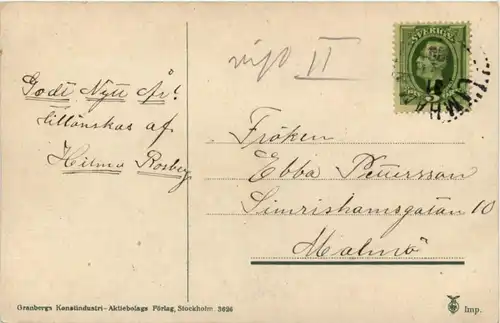 vist II
SVERIGE
Godt Nytt År!
tillönskas af
Hilma Rosberg
Fröken
Ebba Pettersson
Simrishamsgatan 10
Malmö
Granbergs Konstindustri-Aktiebolags Förlag, Stockholm 3626
Imp.